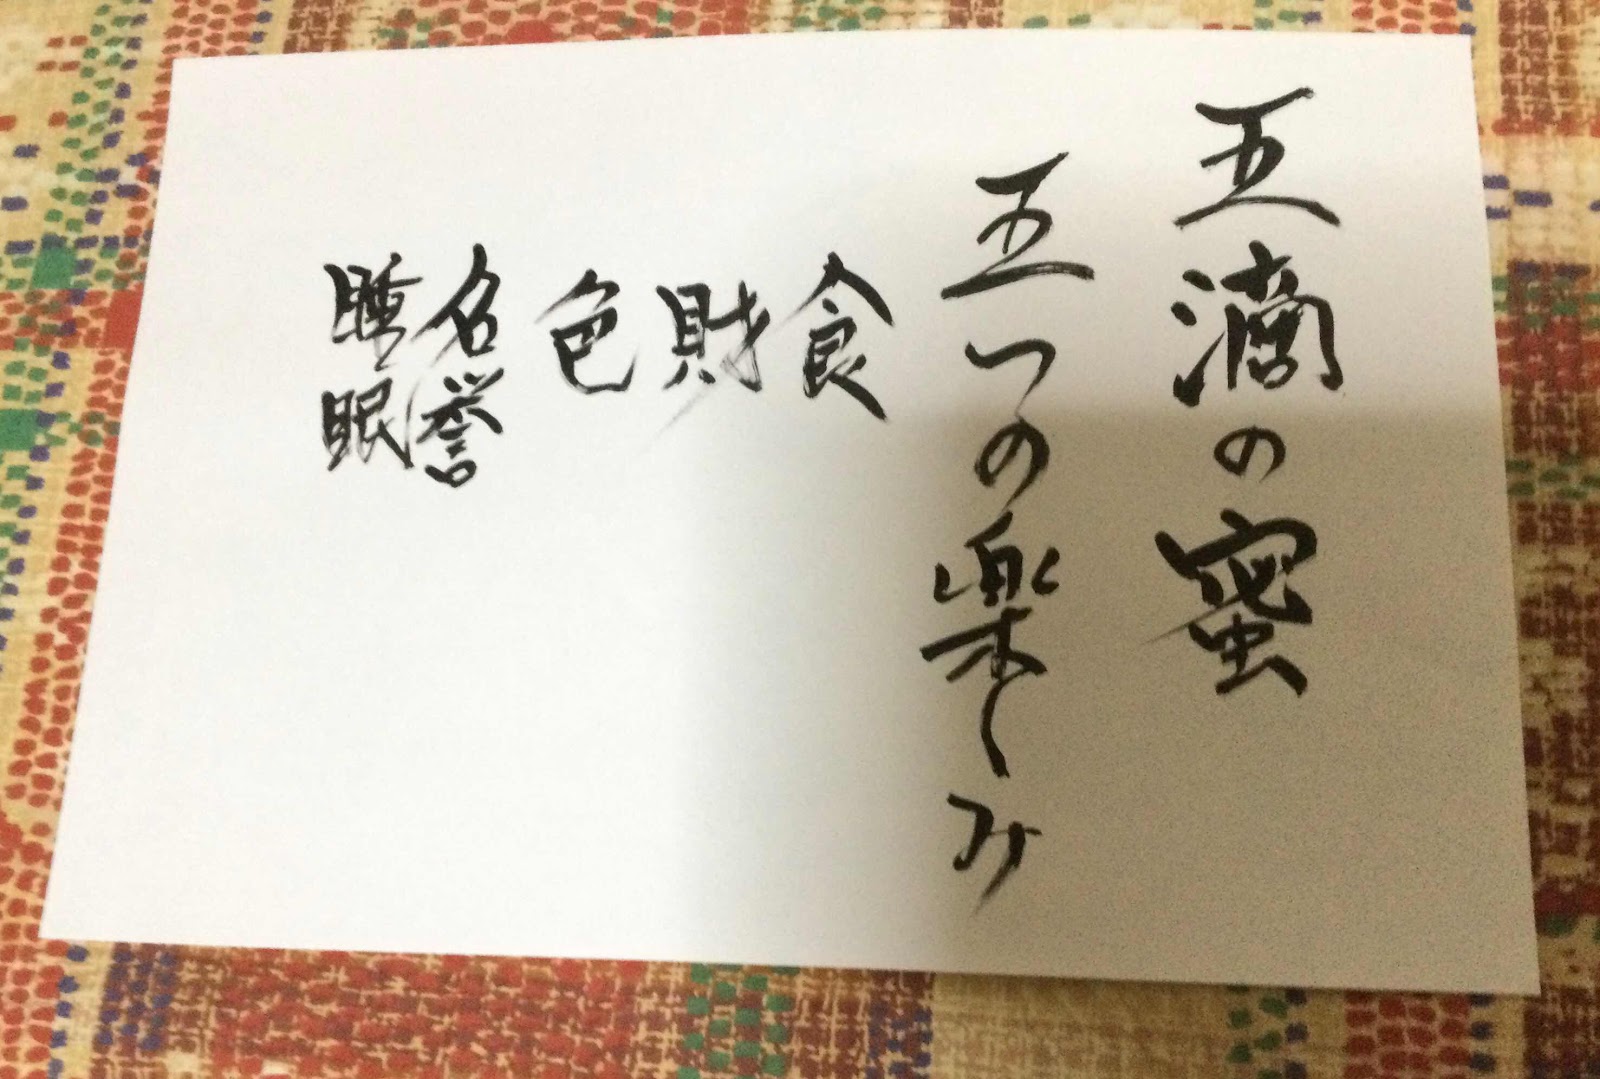 五滴の蜜
五つの楽しみ
食
財
色
名誉
睡眠